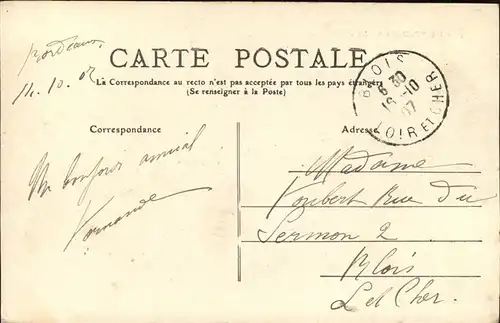 Bordeaux
14.10.07
CARTE POSTALE
La Correspondance au recto n'est pas acceptée par tous les pays étrangers
(Se renseigner à la Poste)
BLOIS
6 30
16-10
07
LOIR ET CHER
Correspondance
Adresse
Un bonjour amical
Fernande
Madame
Joubert Rue du
Sermon 2
Blois
L et Cher.